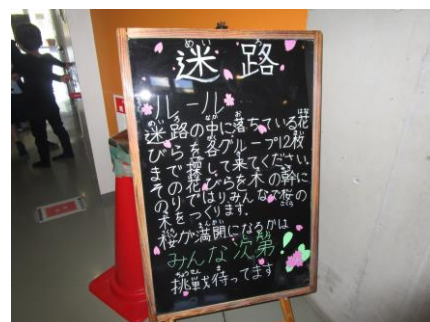 迷路
ルール
迷路の中に落ちている花
びらを各グループ12枚
まで探して来てください。
その花びらを木の幹に
のりではりみんなで桜の
木をつくります。
桜が満開になるかは
みんな次第！
挑戦待ってます